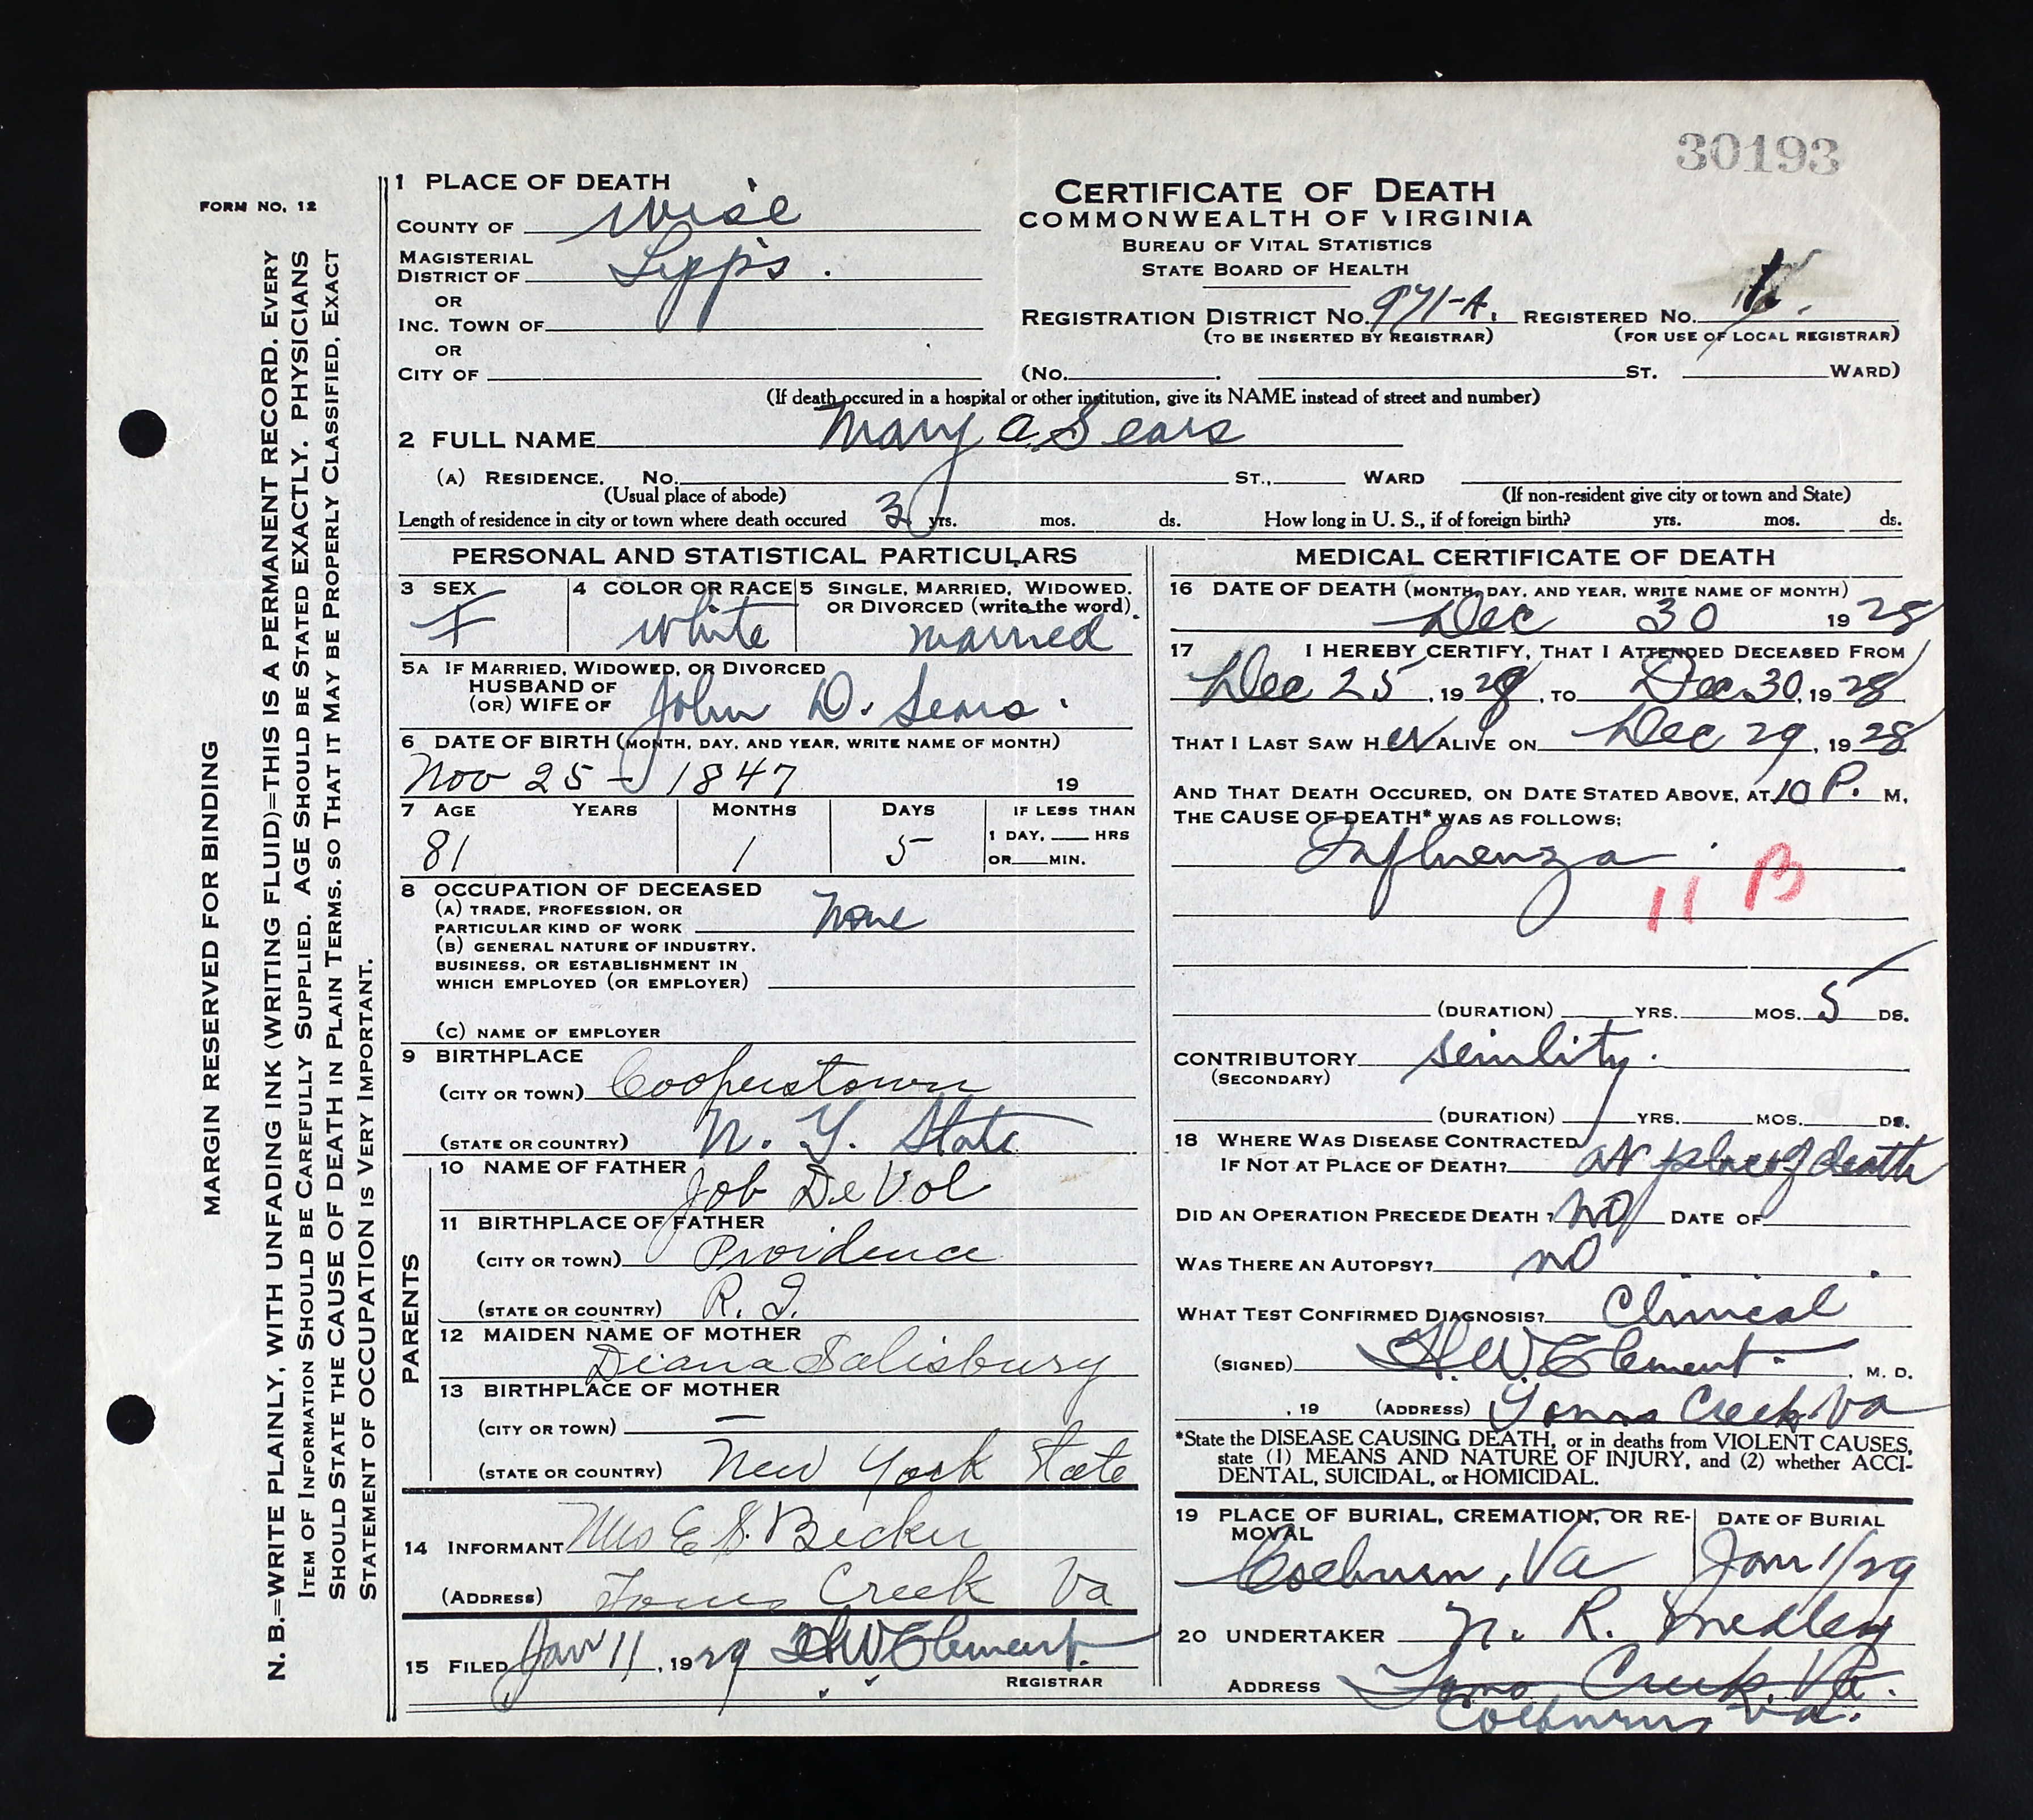 30193
FORM NO. 12
MARGIN RESERVED FOR BINDING
N. B.=WRITE PLAINLY, WITH UNFADING INK (WRITING FLUID)=THIS IS A PERMANENT RECORD. EVERY
ITEM OF INFORMATION SHOULD BE CAREFULLY SUPPLIED. AGE SHOULD BE STATED EXACTLY. PHYSICIANS
SHOULD STATE THE CAUSE OF DEATH IN PLAIN TERMS, SO THAT IT MAY BE PROPERLY CLASSIFIED, EXACT
STATEMENT OF OCCUPATION IS VERY IMPORTANT.
1 PLACE OF DEATH
COUNTY OF Wise
MAGISTERIAL
DISTRICT OF Lipps.
OR
INC. TOWN OF
OR
CITY OF
CERTIFICATE OF DEATH
COMMONWEALTH OF VIRGINIA
BUREAU OF VITAL STATISTICS
STATE BOARD OF HEALTH
REGISTRATION DISTRICT NO. 971-A. REGISTERED NO.
(TO BE INSERTED BY REGISTRAR) (FOR USE OF LOCAL REGISTRAR)
(NO. ST. WARD)
(If death occured in a hospital or other institution, give its NAME instead of street and number)
2 FULL NAME Mary A. Sears
(A) RESIDENCE. NO. ST., WARD
(Usual place of abode) (If non-resident give city or town and State)
Length of residence in city or town where death occured 3 yrs. mos. ds. How long in U. S., if of foreign birth? yrs. mos. ds.
PERSONAL AND STATISTICAL PARTICULARS
3 SEX 4 COLOR OR RACE 5 SINGLE, MARRIED, WIDOWED,
OR DIVORCED (write the word)
F White Married
5A IF MARRIED, WIDOWED, OR DIVORCED
HUSBAND OF
(OR) WIFE OF John D. Sears.
6 DATE OF BIRTH (MONTH, DAY, AND YEAR, WRITE NAME OF MONTH)
Nov 25 - 1847 19
7 AGE YEARS MONTHS DAYS IF LESS THAN
1 DAY, HRS
OR MIN.
81 1 5
8 OCCUPATION OF DECEASED
(A) TRADE, PROFESSION, OR
PARTICULAR KIND OF WORK None
(B) GENERAL NATURE OF INDUSTRY,
BUSINESS, OR ESTABLISHMENT IN
WHICH EMPLOYED (OR EMPLOYER)
(C) NAME OF EMPLOYER
9 BIRTHPLACE
(CITY OR TOWN) Cooperstown
(STATE OR COUNTRY) N. Y. State
PARENTS
10 NAME OF FATHER
Job DeVol
11 BIRTHPLACE OF FATHER
(CITY OR TOWN) Providence
(STATE OR COUNTRY) R. I.
12 MAIDEN NAME OF MOTHER
Diana Salisbury
13 BIRTHPLACE OF MOTHER
(CITY OR TOWN) —
(STATE OR COUNTRY) New York State
14 INFORMANT Mrs E. S. Becker
(ADDRESS) Toms Creek Va
15 FILED Jan 11, 1929 H W Clement.
REGISTRAR
MEDICAL CERTIFICATE OF DEATH
16 DATE OF DEATH (MONTH, DAY, AND YEAR, WRITE NAME OF MONTH)
Dec 30 1928
17 I HEREBY CERTIFY, THAT I ATTENDED DECEASED FROM
Dec 25, 1928, TO Dec. 30, 1928
THAT I LAST SAW HER ALIVE ON Dec 29, 1928
AND THAT DEATH OCCURED, ON DATE STATED ABOVE, AT 10 P. M.
THE CAUSE OF DEATH* WAS AS FOLLOWS:
Influenza.
11 B
(DURATION) YRS. MOS. 5 DS.
CONTRIBUTORY senility.
(SECONDARY)
(DURATION) YRS. MOS. DS.
18 WHERE WAS DISEASE CONTRACTED
IF NOT AT PLACE OF DEATH? at place of death
DID AN OPERATION PRECEDE DEATH? no DATE OF
WAS THERE AN AUTOPSY? no
WHAT TEST CONFIRMED DIAGNOSIS? Clinical
(SIGNED) H. W. Clement. M. D.
, 19 (ADDRESS) Toms Creek Va
*State the DISEASE CAUSING DEATH, or in deaths from VIOLENT CAUSES,
state (1) MEANS AND NATURE OF INJURY, and (2) whether ACCI-
DENTAL, SUICIDAL, or HOMICIDAL.
19 PLACE OF BURIAL, CREMATION, OR RE-
MOVAL
DATE OF BURIAL
Coeburn, Va Jan 1/29
20 UNDERTAKER N. R. Medley
ADDRESS Toms Creek, Va.
Coeburn, Va.